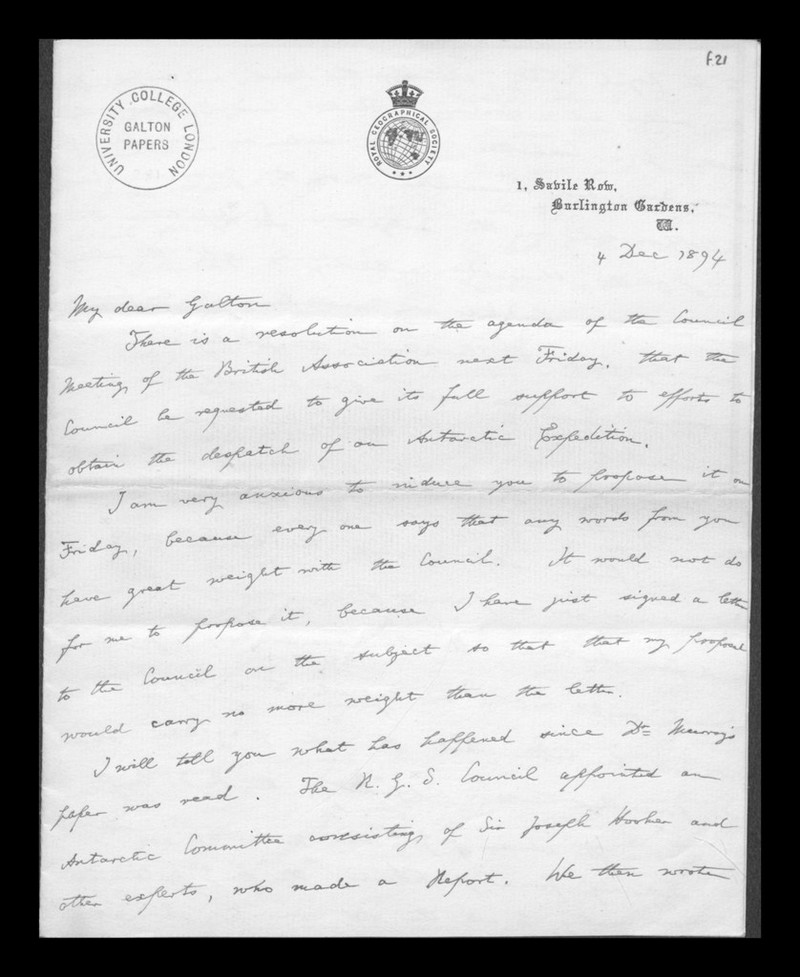 f21
UNIVERSITY COLLEGE LONDON
GALTON
PAPERS
ROYAL GEOGRAPHICAL SOCIETY
1, Savile Row,
Burlington Gardens,
W.
4 Dec 1894
My dear Galton
There is a resolution on the agenda of the Council
Meeting of the British Association next Friday, that the
Council be requested to give its full support to efforts to
obtain the despatch of an Antarctic Expedition.
I am very anxious to induce you to propose it on
Friday, because every one says that any words from you
have great weight with the Council. It would not do
for me to propose it, because I have just signed a letter
to the Council on the subject so that that my proposal
would carry no more weight than the letter.
I will tell you what has happened since Dr Murray's
paper was read. The R. G. S. Council appointed an
Antarctic Committee consisting of Sir Joseph Hooker and
other experts, who made a Report. We then wrote